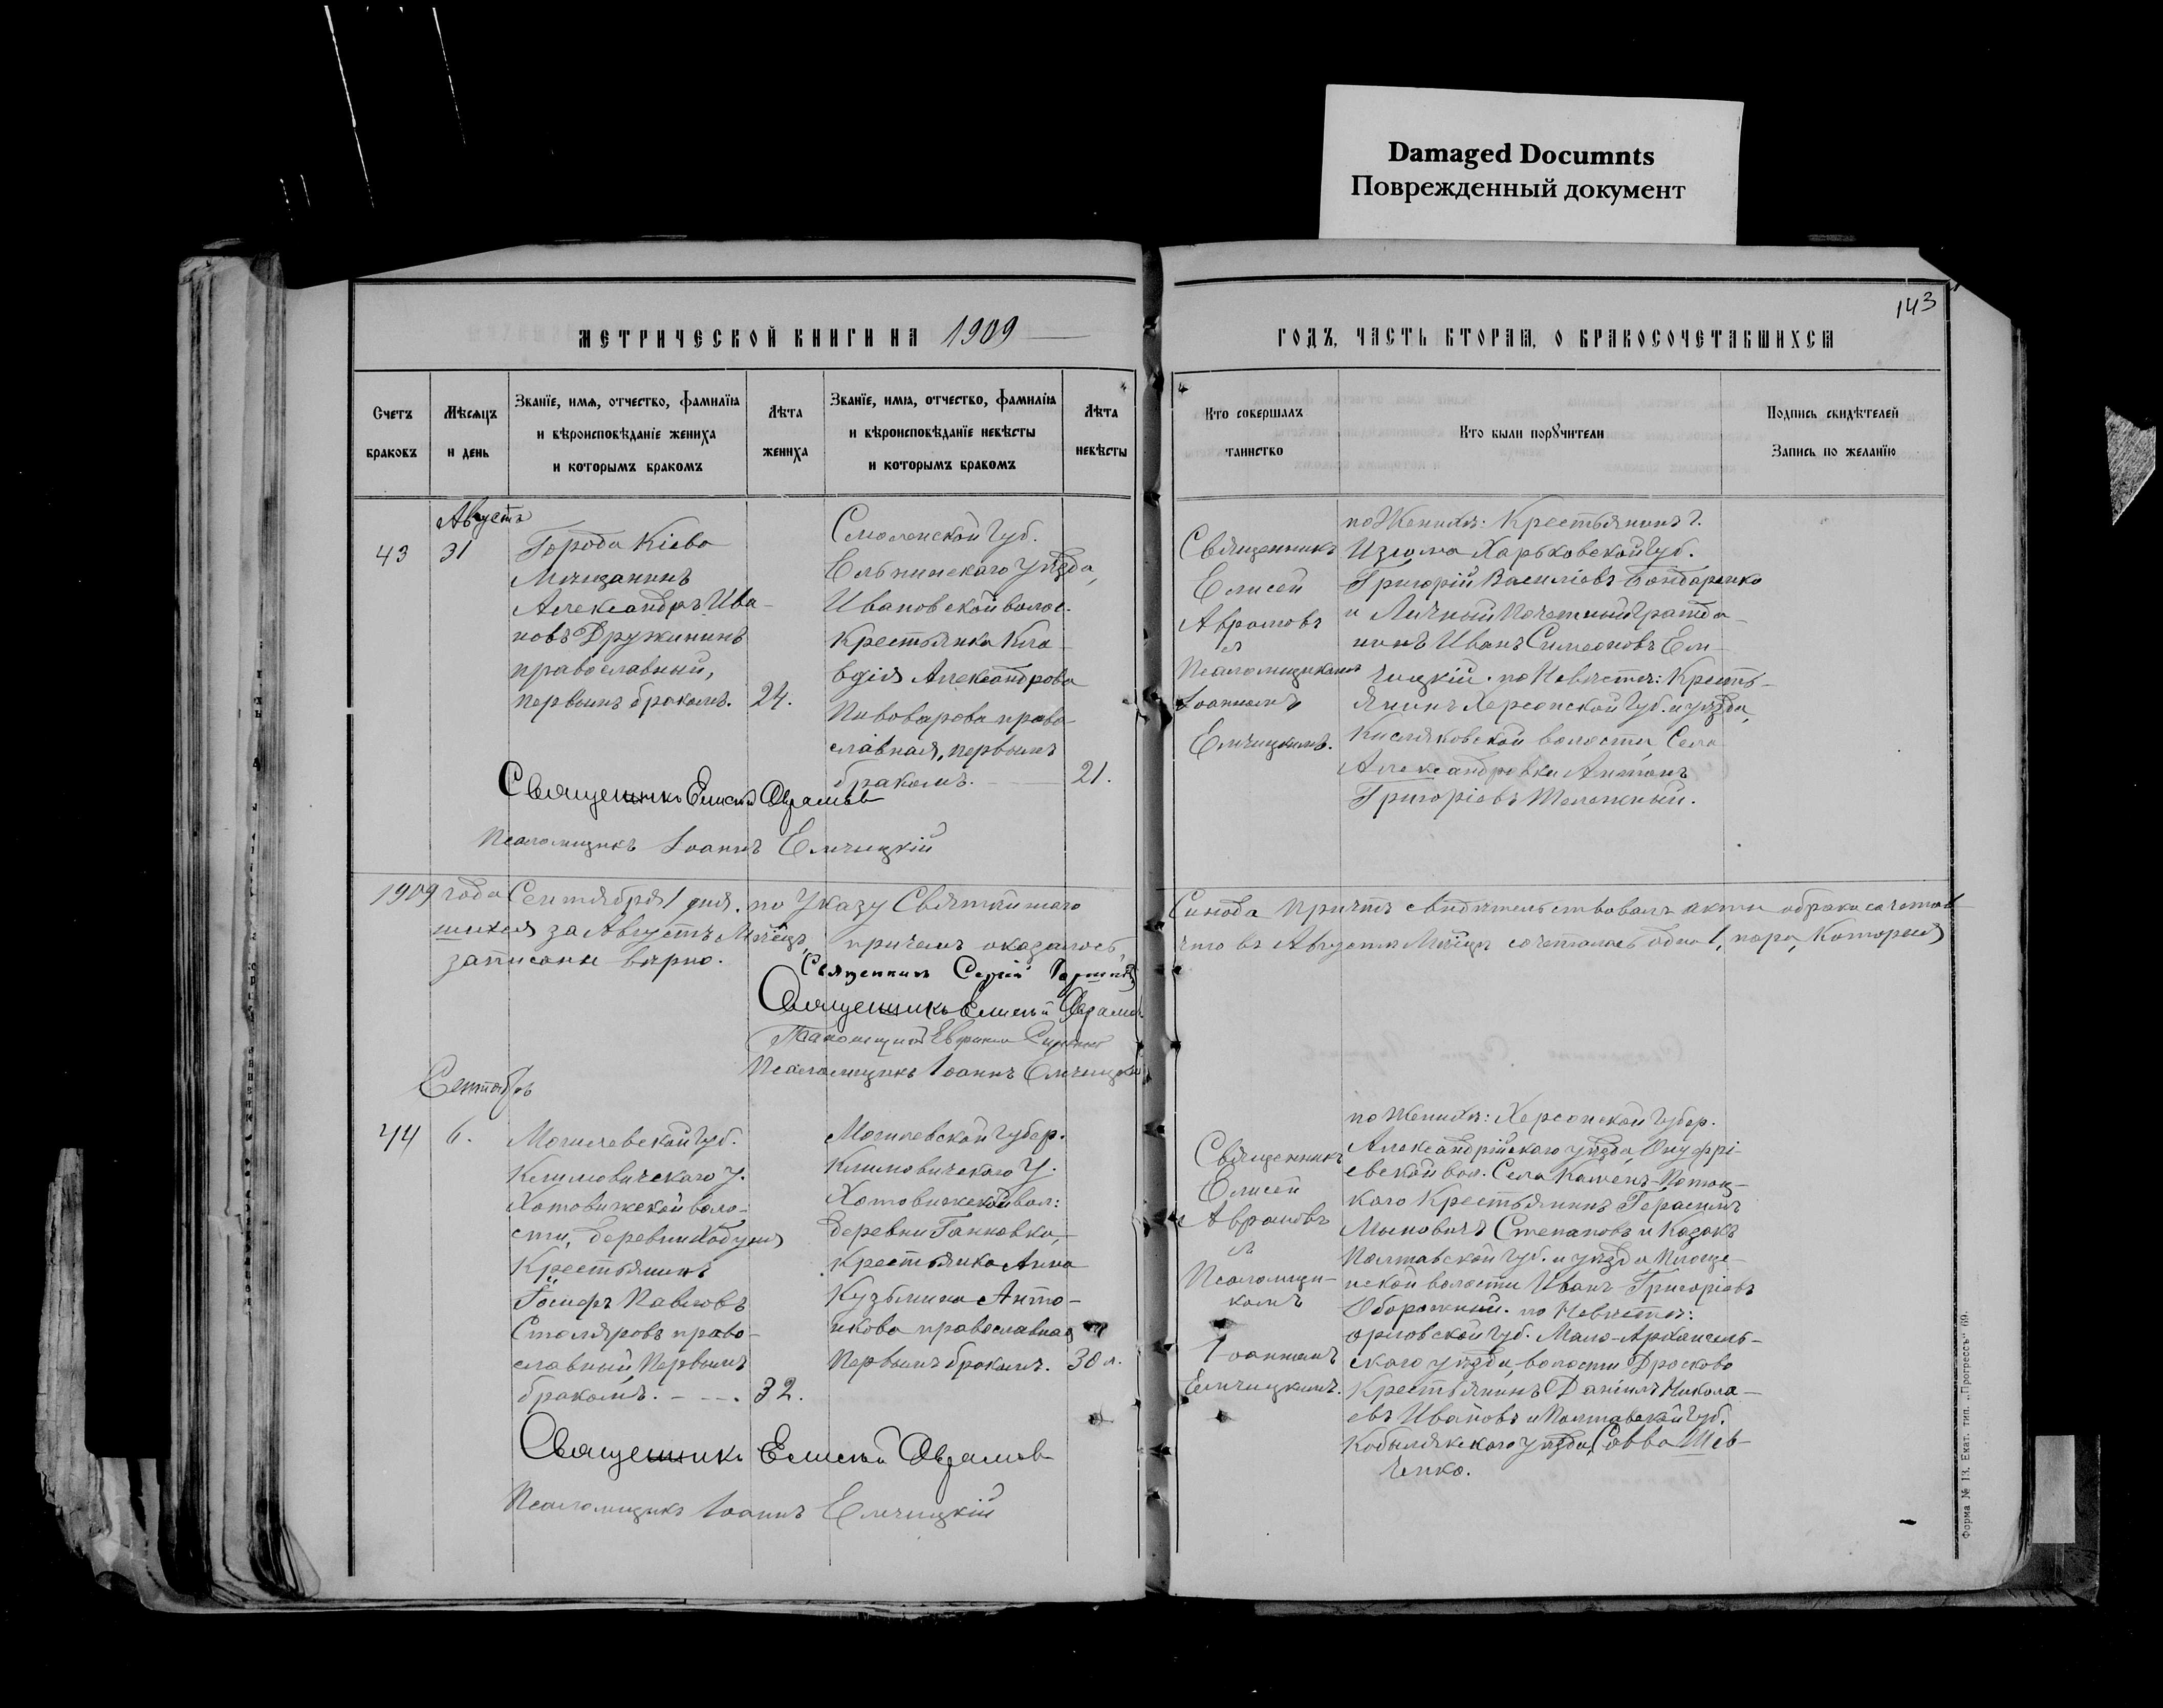 Damaged Documnts
Поврежденный документ
143
МЕТРИЧЕСКОЙ КНИГИ НА 1909
ГОДЪ, ЧАСТЬ ВТОРАЯ, О БРАКОСОЧЕТАВШИХСЯ
Счетъ
браковъ
Мѣсяцъ
и день
Званїе, имя, отчество, фамилїя
и вѣроисповѣданїе жениха
и которымъ бракомъ
Лѣта
жениха
Званїе, имя, отчество, фамилїя
и вѣроисповѣданїе невѣсты
и которымъ бракомъ
Лѣта
невѣсты
Кто совершалъ
таинство
Кто были порꙋчители
Подпись свидѣтелей
Запись по желанїю
Августъ
43
31
Города Кіева
Мѣщанинъ
Александръ Ива-
новъ Дружининъ
православный,
первымъ бракомъ.
24.
Смоленской Губ.
Ельнинскаго уѣзда,
Ивановской волос.
Крестьянка Кла-
вдія Александрова
Пивоварова право-
славная, первымъ
бракомъ.
21.
Священникъ
Елисей
Аврамовъ
съ
Псаломщикомъ
Іоанномъ
Елчицкимъ.
по Женихѣ: Крестьянинъ г.
Изюма Харьковской Губ.
Григорій Василіовъ Бондаренко
и Личный Почетный Гражда-
нинъ Иванъ Симеоновъ Ел-
чицкій. по Невѣстѣ: Кресть-
янинъ Херсонской Губ. и уѣзда,
Кисляковской волости, Села
Александровки Антонъ
Григоріевъ
Священникъ Елисей Аврамов
Псаломщикъ Іоаннъ Елчицкій
1909 года Сентября 1 дня. по Указу Святѣйшаго
Синода Причтъ свидѣтельствовалъ акты о бракосочетав-
шихся за Августъ Мѣсяцъ, причемъ оказалось,
что въ Августѣ Мѣсяцѣ сочеталась одна 1, пара, Которыя
записаны вѣрно.
Священник Сергій
Священникъ Елисей Аврамов
Псаломщикъ Іоаннъ Елчицкій
Сентябрь
44
6.
Могилевской Губ.
Климовическаго У.
Хотовижской воло-
сти, деревни
Крестьянинъ
Іосифъ Павловъ
Столяровъ право-
славный, Первымъ
бракомъ.
32.
Могилевской Губер.
Климовическаго У.
Хотовижской вол:
деревни Ганновка,
Крестьянка Анна
Кузьмина Анто-
нкова православная
Первымъ бракомъ.
30 л.
Священникъ
Елисей
Аврамовъ
съ
Псаломщи-
комъ
Іоанномъ
Елчицкимъ.
по Женихѣ: Херсонской Губер.
Александрійскаго уѣзда, Онуфрі-
евской вол. Села Камень-Потоц-
каго Крестьянинъ Герасимъ
Степановъ и Козакъ
Полтавской Губ. и уѣзда Площе-
нской волости Иванъ Григоріовъ
Оборожный. по Невѣстѣ:
орловской Губ. Мало-Архангель-
скаго уѣзда, волости Дросково
Крестьянинъ Даніилъ Никола-
евъ Ивановъ и Полтавской Губ.
Кобылякскаго уѣзда, Савва Шев-
ченко.
Священникъ Елисей Аврамов
Псаломщикъ Іоаннъ Елчицкій
Форма № 13. Екат. тип. „Прогрессъ“ 69.